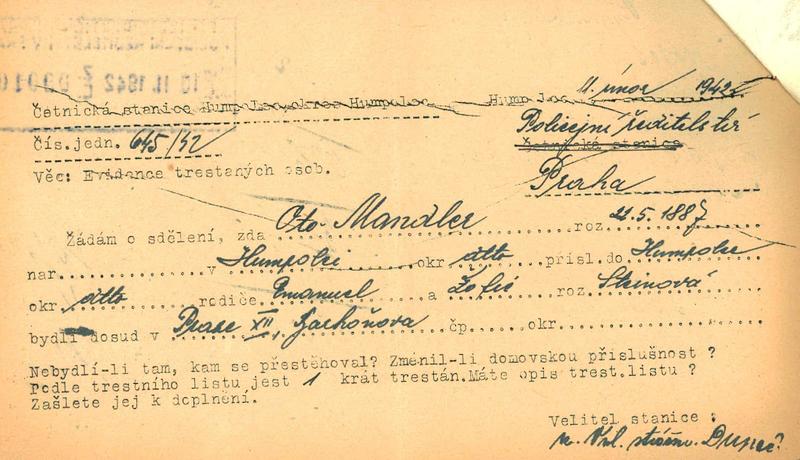 10. II. 1942
Četnická stanice Humpolec, okres Humpolec Humpolec 11. únor 1942
Čís. jedn. 645/42
Policejní ředitelství
četnická stanice
Věc: Evidence trestaných osob.
Praha
Žádám o sdělení, zda Oto Mandler roz 22.5.1887
nar. v Humpolci okr dtto přísl. do Humpolce
okr dtto rodiče Emanuel a Žofie roz Steinová
bydlí dosud v Praze XII, čp. okr.
Nebydlí-li tam, kam se přestěhoval? Změnil-li domovskou příslušnost ?
Podle trestního listu jest 1 krát trestán. Máte opis trest. listu ?
Zašlete jej k doplnění.
Velitel stanice :